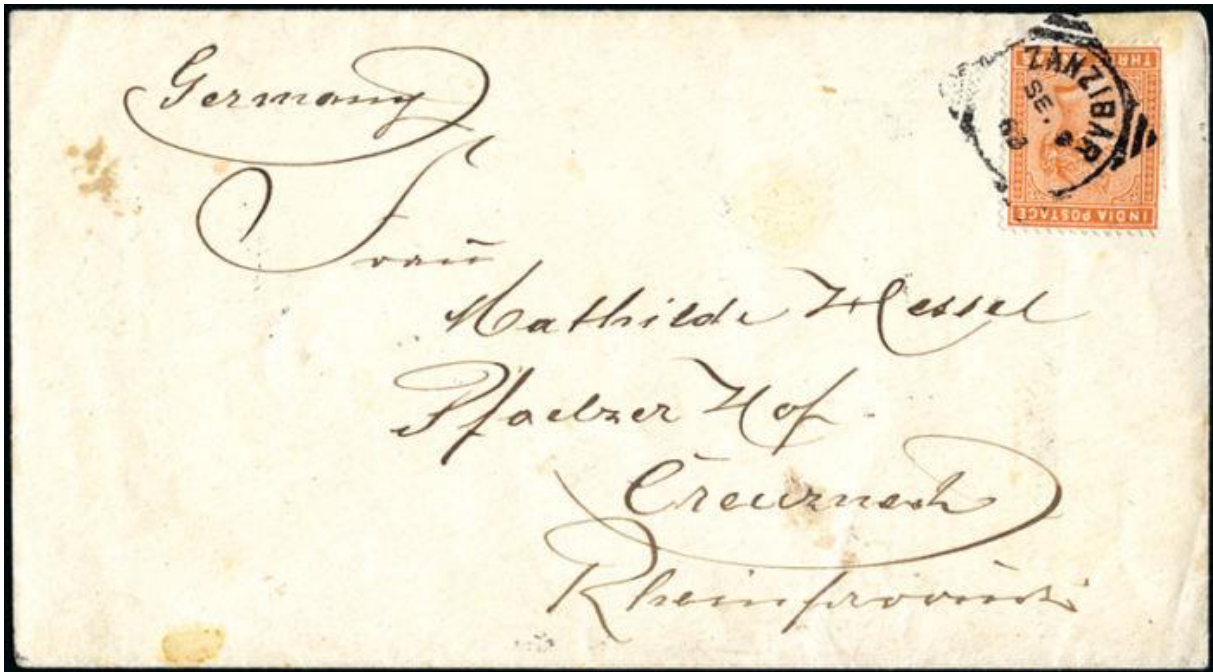 Germany
Frau
Mathilde Hessel
Pfaelzer Hof
Creuznach
Rheinprovinz
ZANZIBAR
SE.
INDIA POSTAGE